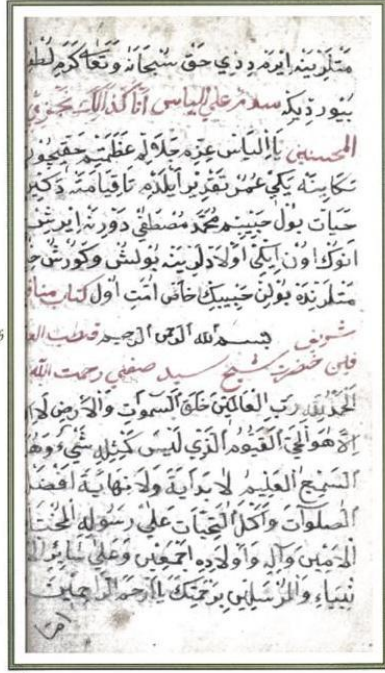 متلرینه ایرمزدی حق سبحانه وتعالی کرم لطف
بیوردیکه سلام علی الیاس انا کذالک نجزی
المحسنین یا الیاس عزم جلالم عظمتیم حقیچون
سکا ینه یکی عمر تقدیر ایلدم تا قیامته دکین
حیات بول حبیبیم محمد مصطفی دورنه ایریش
انوک اون ایکی اولادلرینه بولیش وکورش
متلرنده بولن حبیبیک خاص امت اول کتاب مناقب
شریف بسم الله الرحمن الرحیم قطب
حضرت شیخ سید صفی رحمت الله
الحمد لله رب العالمین خلق السموات والارض لا
الا هو الحی القیوم الذی لیس کمثله شیء وهو
السمیع العلیم لا بدایة ولا نهایة افضل
الصلوات واکمل التحیات علی رسوله المختار
الامین وآله واولاده اجمعین وعلی سائر الا
نبیاء والمرسلین برحمتک یا ارحم الراحمین